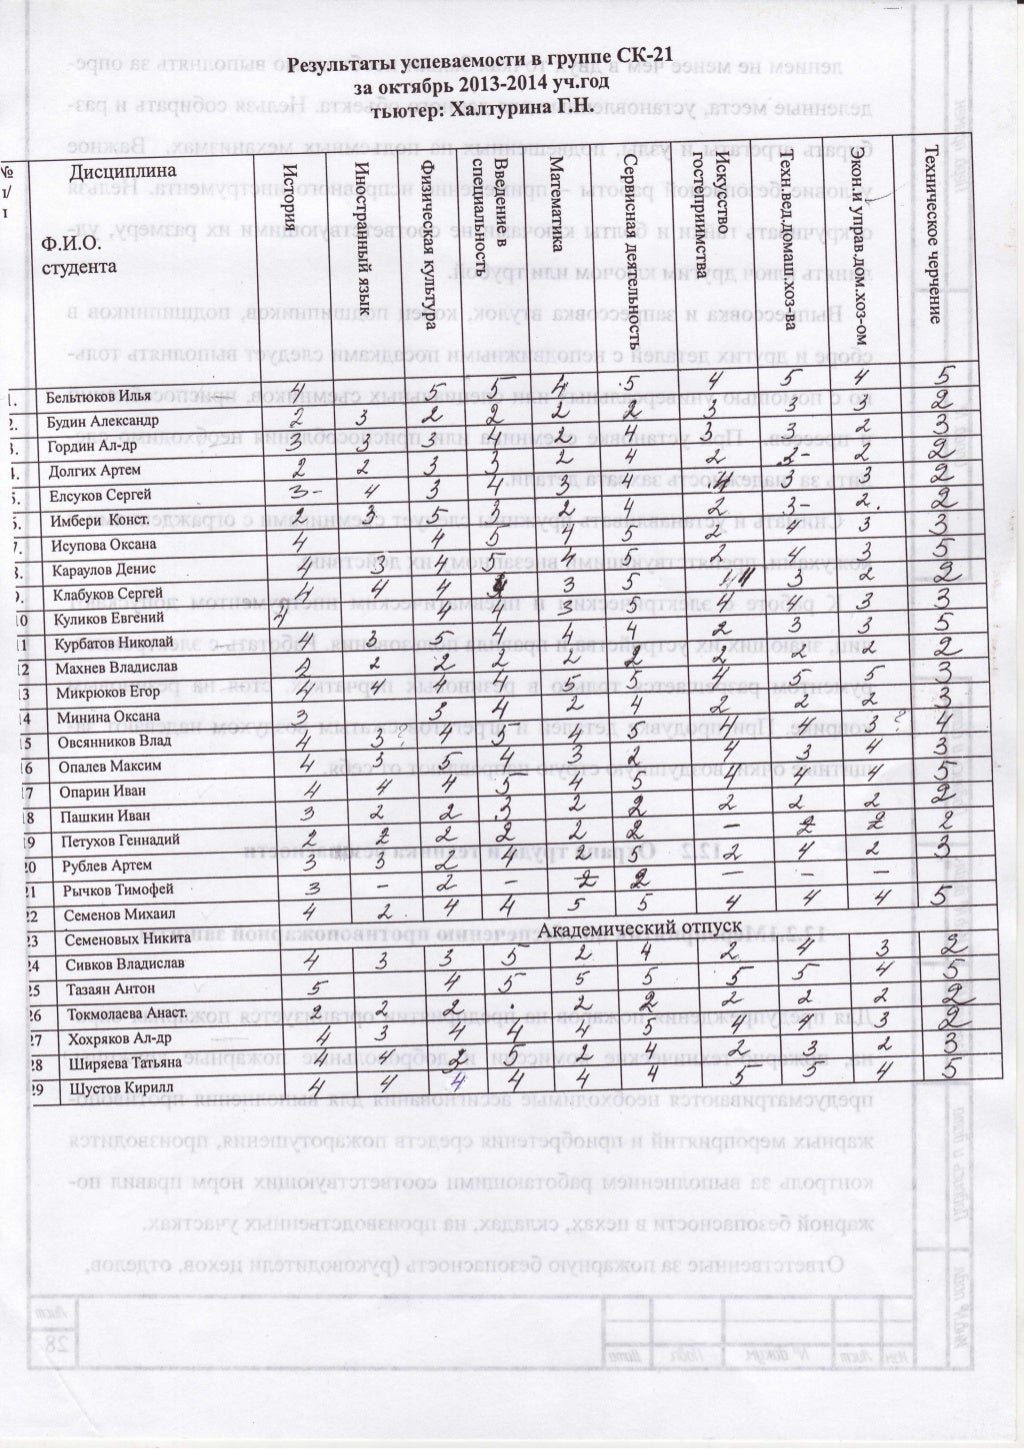 Результаты успеваемости в группе СК-21
за октябрь 2013-2014 уч.год
тьютер: Халтурина Г.Н.
№ Дисциплина
Ф.И.О.
студента
История
Иностранный язык
Физическая культура
Введение в специальность
Математика
Сервисная деятельность
Искусство гостеприимства
Техн.вед.домаш.хоз-ва
Экон.и управ.дом.хоз-ом
Техническое черчение
1. Бельтюков Илья 4 5 5 4 5 4 5 4 5
2. Будин Александр 2 3 2 2 2 2 3 3 3 2
3. Гордин Ал-др 3 3 3 4 2 4 3 3 2 3
4. Долгих Артем 2 2 3 3 2 4 2 3- 2 2
5. Елсуков Сергей 3- 4 3 4 3 4 4 3 3 2
6. Имбери Конст. 2 3 5 3 2 4 2 3- 2. 2
7. Исупова Оксана 4 4 5 4 5 2 4 3 3
8. Караулов Денис 4 3 4 5 4 5 2 4 3 5
9. Клабуков Сергей 4 4 4 3 5 4 3 2 2
10 Куликов Евгений 4 4 3 5 4 4 3 3
11 Курбатов Николай 4 3 5 4 4 4 2 3 3 5
12 Махнев Владислав 2 2 2 2 2 2 2 2 2
13 Микрюков Егор 4 4 4 4 5 5 4 5 5 3
14 Минина Оксана 3 3 4 2 4 2 2 2 3
15 Овсянников Влад 4 3? 4 3 4 5 4 4 3? 4
16 Опалев Максим 4 3 5 4 3 2 4 3 4 3
17 Опарин Иван 4 4 4 5 4 5 4 4 4 5
18 Пашкин Иван 3 2 2 3 2 2 2 2 2 2
19 Петухов Геннадий 2 2 2 2 2 2 - 2 2 2
20 Рублев Артем 3 3 2 4 2 5 2 4 2 3
21 Рычков Тимофей 3 - 2 - 2 2 - - -
22 Семенов Михаил 4 2 4 4 5 5 4 4 4 5
23 Семеновых Никита Академический отпуск
24 Сивков Владислав 4 3 3 5 2 4 2 4 3 2
25 Тазаян Антон 5 4 5 5 5 5 5 4 5
26 Токмолаева Анаст. 2 2 2 . 2 2 2 2 2 2
27 Хохряков Ал-др 4 3 4 4 4 5 4 4 3 2
28 Ширяева Татьяна 4 4 2 5 2 4 2 3 2 3
29 Шустов Кирилл 4 4 4 4 4 4 5 5 4 5